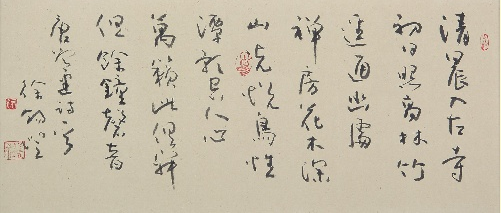 清晨入古寺
初日照高林竹
逕通幽處
禪房花木深
山光悅鳥性
潭影空人心
萬籟此俱寂
但餘鐘磬音
唐常建詩
徐